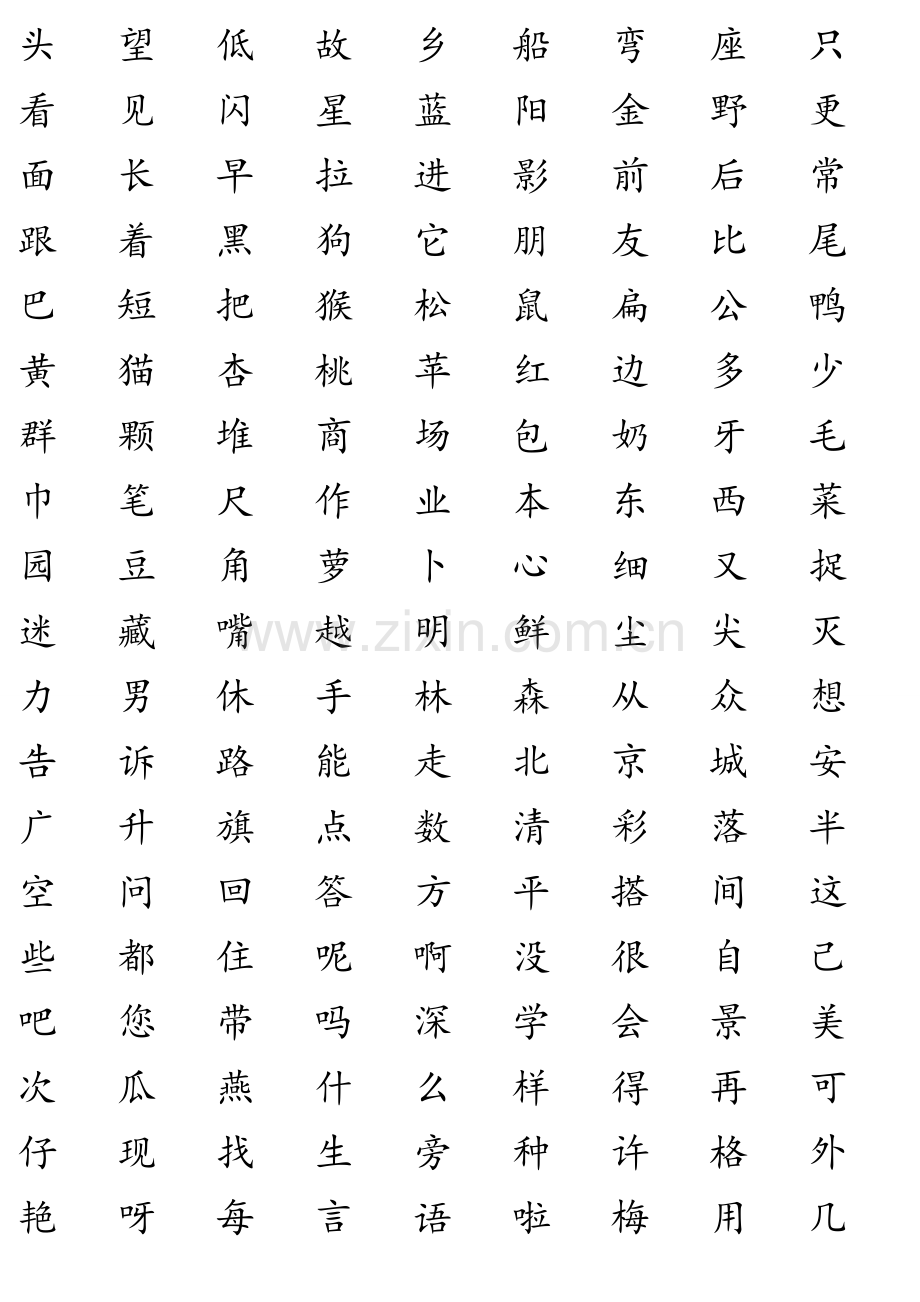 头 望 低 故 乡 船 弯 座 只
看 见 闪 星 蓝 阳 金 野 更
面 长 早 拉 进 影 前 后 常
跟 着 黑 狗 它 朋 友 比 尾
巴 短 把 猴 松 鼠 扁 公 鸭
黄 猫 杏 桃 苹 红 边 多 少
群 颗 堆 商 场 包 奶 牙 毛
巾 笔 尺 作 业 本 东 西 菜
园 豆 角 萝 卜 心 细 又 捉
迷 藏 嘴 越 明 鲜 尘 尖 灭
www.zixin.com.cn
力 男 休 手 林 森 从 众 想
告 诉 路 能 走 北 京 城 安
广 升 旗 点 数 清 彩 落 半
空 问 回 答 方 平 搭 间 这
些 都 住 呢 啊 没 很 自 己
吧 您 带 吗 深 学 会 景 美
次 瓜 燕 什 么 样 得 再 可
仔 现 找 生 旁 种 许 格 外
艳 呀 每 言 语 啦 梅 用 几